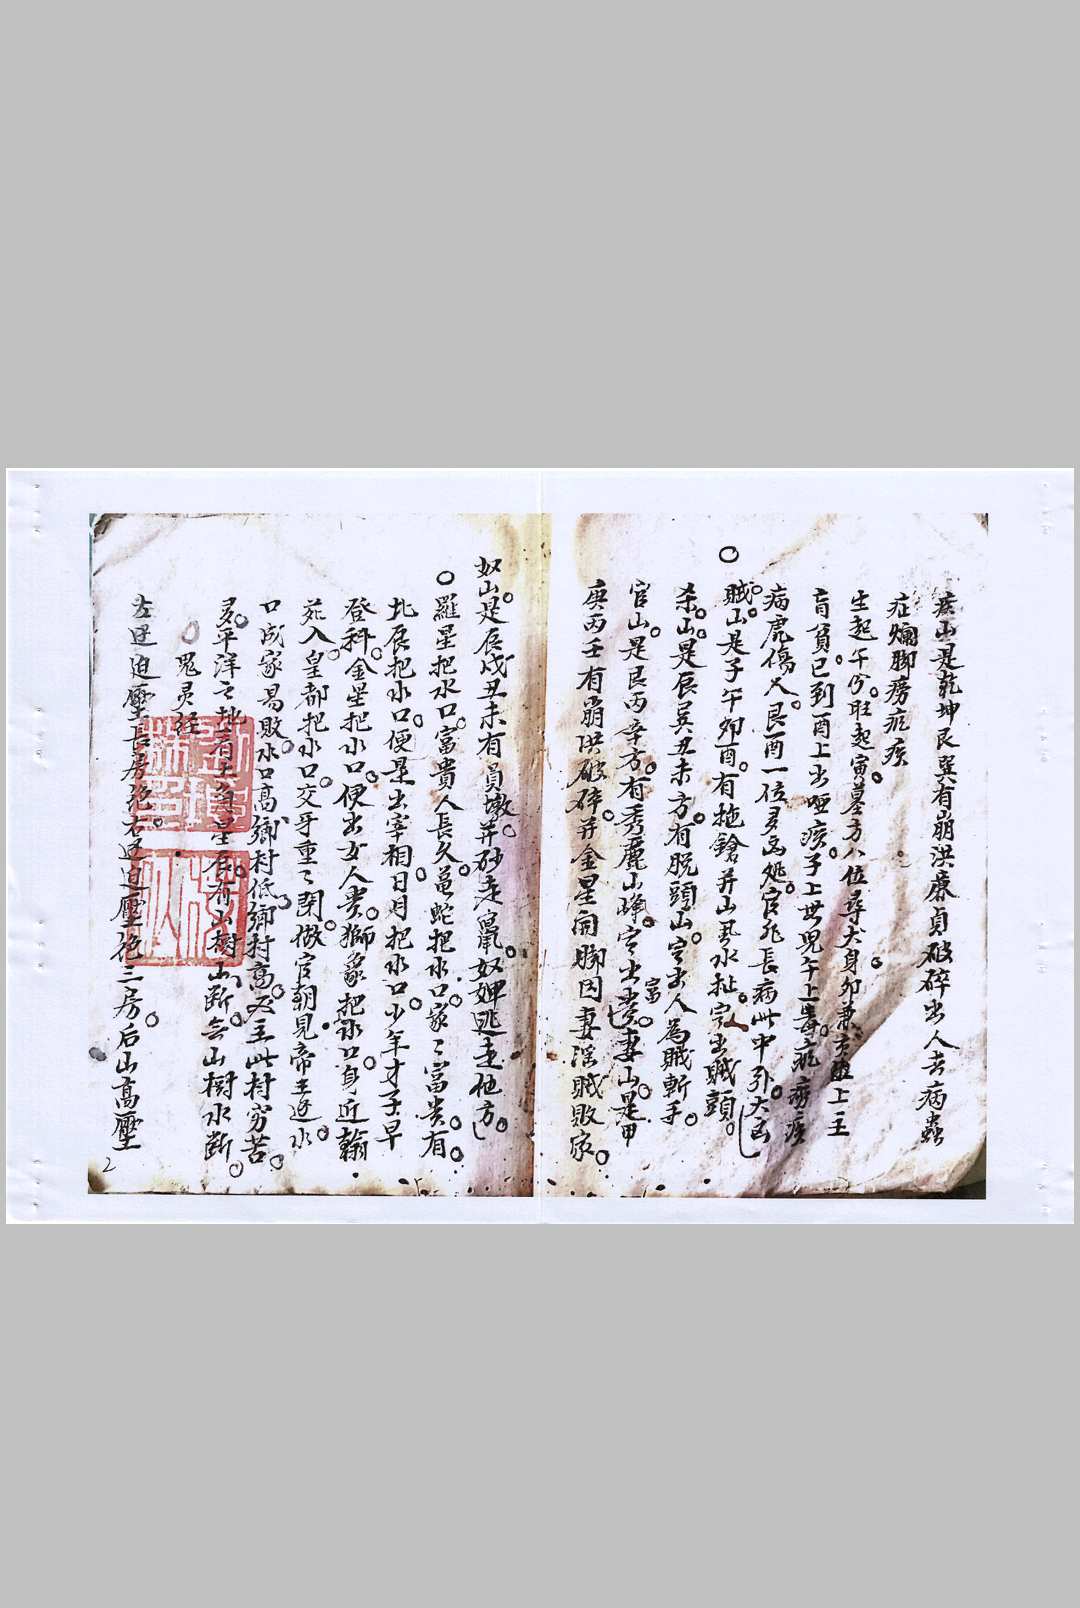 疾山是乾坤艮巽有崩洪廉貞破碎出人去病蟲
症爛脚癆疷疾
生起午兮。旺起寅。墓方八位尋犬身。卯兼亥 上主
盲貧。巳到酉上出哑痰。子上世現午上 癆疾
病虎傷人。艮酉一位多凶処。官非長病此中引。大凶
賊山。是子午卯酉。有拖鎗并山 水扯。定出賊頭。
杀山。是辰巽丑未方。有脱頭山。定出人為賊斬手。
官山。是艮丙辛方。有秀麗山峰。定出富貴。妻山。是甲
庚丙壬有崩洪破碎。并金星開脚因妻淫賊敗家。
奴山。是辰戌丑未有員墩。并砂走竄。奴婢逃走他方。
羅星把水口。富貴人長久。黾蛇把水口。家〻富贵有。
北辰把水口。便是出宰相。日月把水口。少年才子早
登科。金星把水口。便出女人贵。獅象把水口。身近翰
苑。入皇都把水口。交牙重〻闭。做官朝見帝主。逆水
口成家易敗。水口高鄉村低。鄉村高。必主此村穷苦
多。平洋之地 星石有山樹山断。无山樹水断。
鬼灵经
左逼迫壓長房絶。右逼迫壓绝三房。后山高壓
2